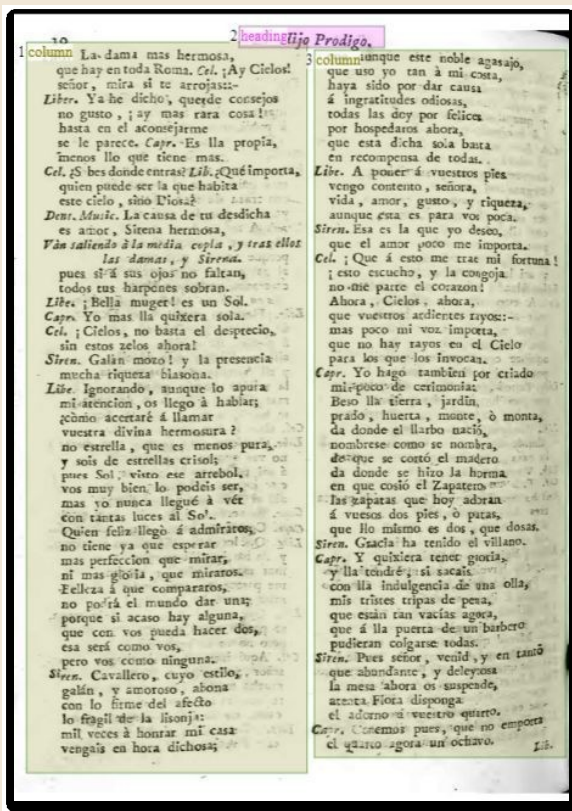 10
2 heading
lijo Prodigo.
1 column
La dama mas hermosa,
que hay en toda Roma. Cel. ¡Ay Cielos!
señor, mira si te arrojas::-
Liber. Ya he dicho, que de consejos
no gusto, ¡ay mas rara cosa!
hasta en el aconsejarme
se le parece. Capr. Es lla propia,
menos llo que tiene mas.
Cel. ¿S bes donde entras? Lib. ¿Qué importa,
quien puede ser la que habita
este cielo, sino Diosa?
Dent. Music. La causa de tu desdicha
es amor, Sirena hermosa,
Vàn saliendo à la media copla, y tras ellos
las damas, y Sirena.
pues si á sus ojos no faltan,
todos tus harpones sobran.
Libe. ¡Bella muger! es un Sol.
Capr. Yo mas lla quixera sola.
Cel. ¡Cielos, no basta el desprecio,
sin estos zelos ahora!
Siren. Galán mozo! y la presencia
mucha riqueza blasona.
Libe. Ignorando, aunque lo apura
mi atencion, os llego à hablar;
¿cómo acertaré á llamar
vuestra divina hermosura?
no estrella, que es menos pura,
y sois de estrellas crisol;
pues Sol, visto ese arrebol,
vos muy bien lo podeis ser,
mas yo nunca llegué à vér
con tantas luces al Sol.
Quien feliz llegó á admiraros,
no tiene ya que esperar
mas perfeccion que mirar,
ni mas gloria, que miraros.
Belleza á que compararos,
no podrá el mundo dar una;
porque si acaso hay alguna,
que con vos pueda hacer dos,
esa será como vos,
pero vos como ninguna.
Siren. Cavallero, cuyo estilo,
galán, y amoroso, abona
con lo firme del afecto
lo fragil de la lisonja:
mil veces à honrar mi casa
vengais en hora dichosa;
3 column
aunque este noble agasajo,
que uso yo tan à mi costa,
haya sido por dar causa
á ingratitudes odiosas,
todas las doy por felices
por hospedaros ahora,
que esta dicha sola basta
en recompensa de todas.
Libe. A poner á vuestros pies
vengo contento, señora,
vida, amor, gusto, y riqueza,
aunque esta es para vos poca.
Siren. Esa es la que yo deseo,
que el amor poco me importa.
Cel. ¡Que á esto me trae mi fortuna!
¡esto escucho, y la congoja
no me parte el corazon!
Ahora, Cielos, ahora,
que vuestros ardientes rayos::-
mas poco mi voz importa,
que no hay rayos en el Cielo
para los que los invocan.
Capr. Yo hago tambien por criado
mi poco de cerimonia:
Beso lla tierra, jardin,
prado, huerta, monte, ò monta,
da donde el llarbo nació,
nombrese como se nombra,
de que se cortó el madero
da donde se hizo la horma
en que cosió el Zapatero
las zapatas que hoy adoran
á vuesos dos pies, ò patas,
que llo mismo es dos, que dosas.
Siren. Gracia ha tenido el villano.
Capr. Y quixiera tener gloria,
y lla tendré, si sacais
con lla indulgencia de una olla,
mis tristes tripas de pena,
que están tan vacías agora,
que á lla puerta de un barbero
pudieran colgarse todas.
Siren. Pues señor, venid, y en tanto
que abundante, y deleytosa
la mesa ahora os suspende,
atenta Flora disponga
el adorno á vuestro quarto.
Capr. Cenemos pues, que no emporta
el quarto agora un ochavo.
Lib.